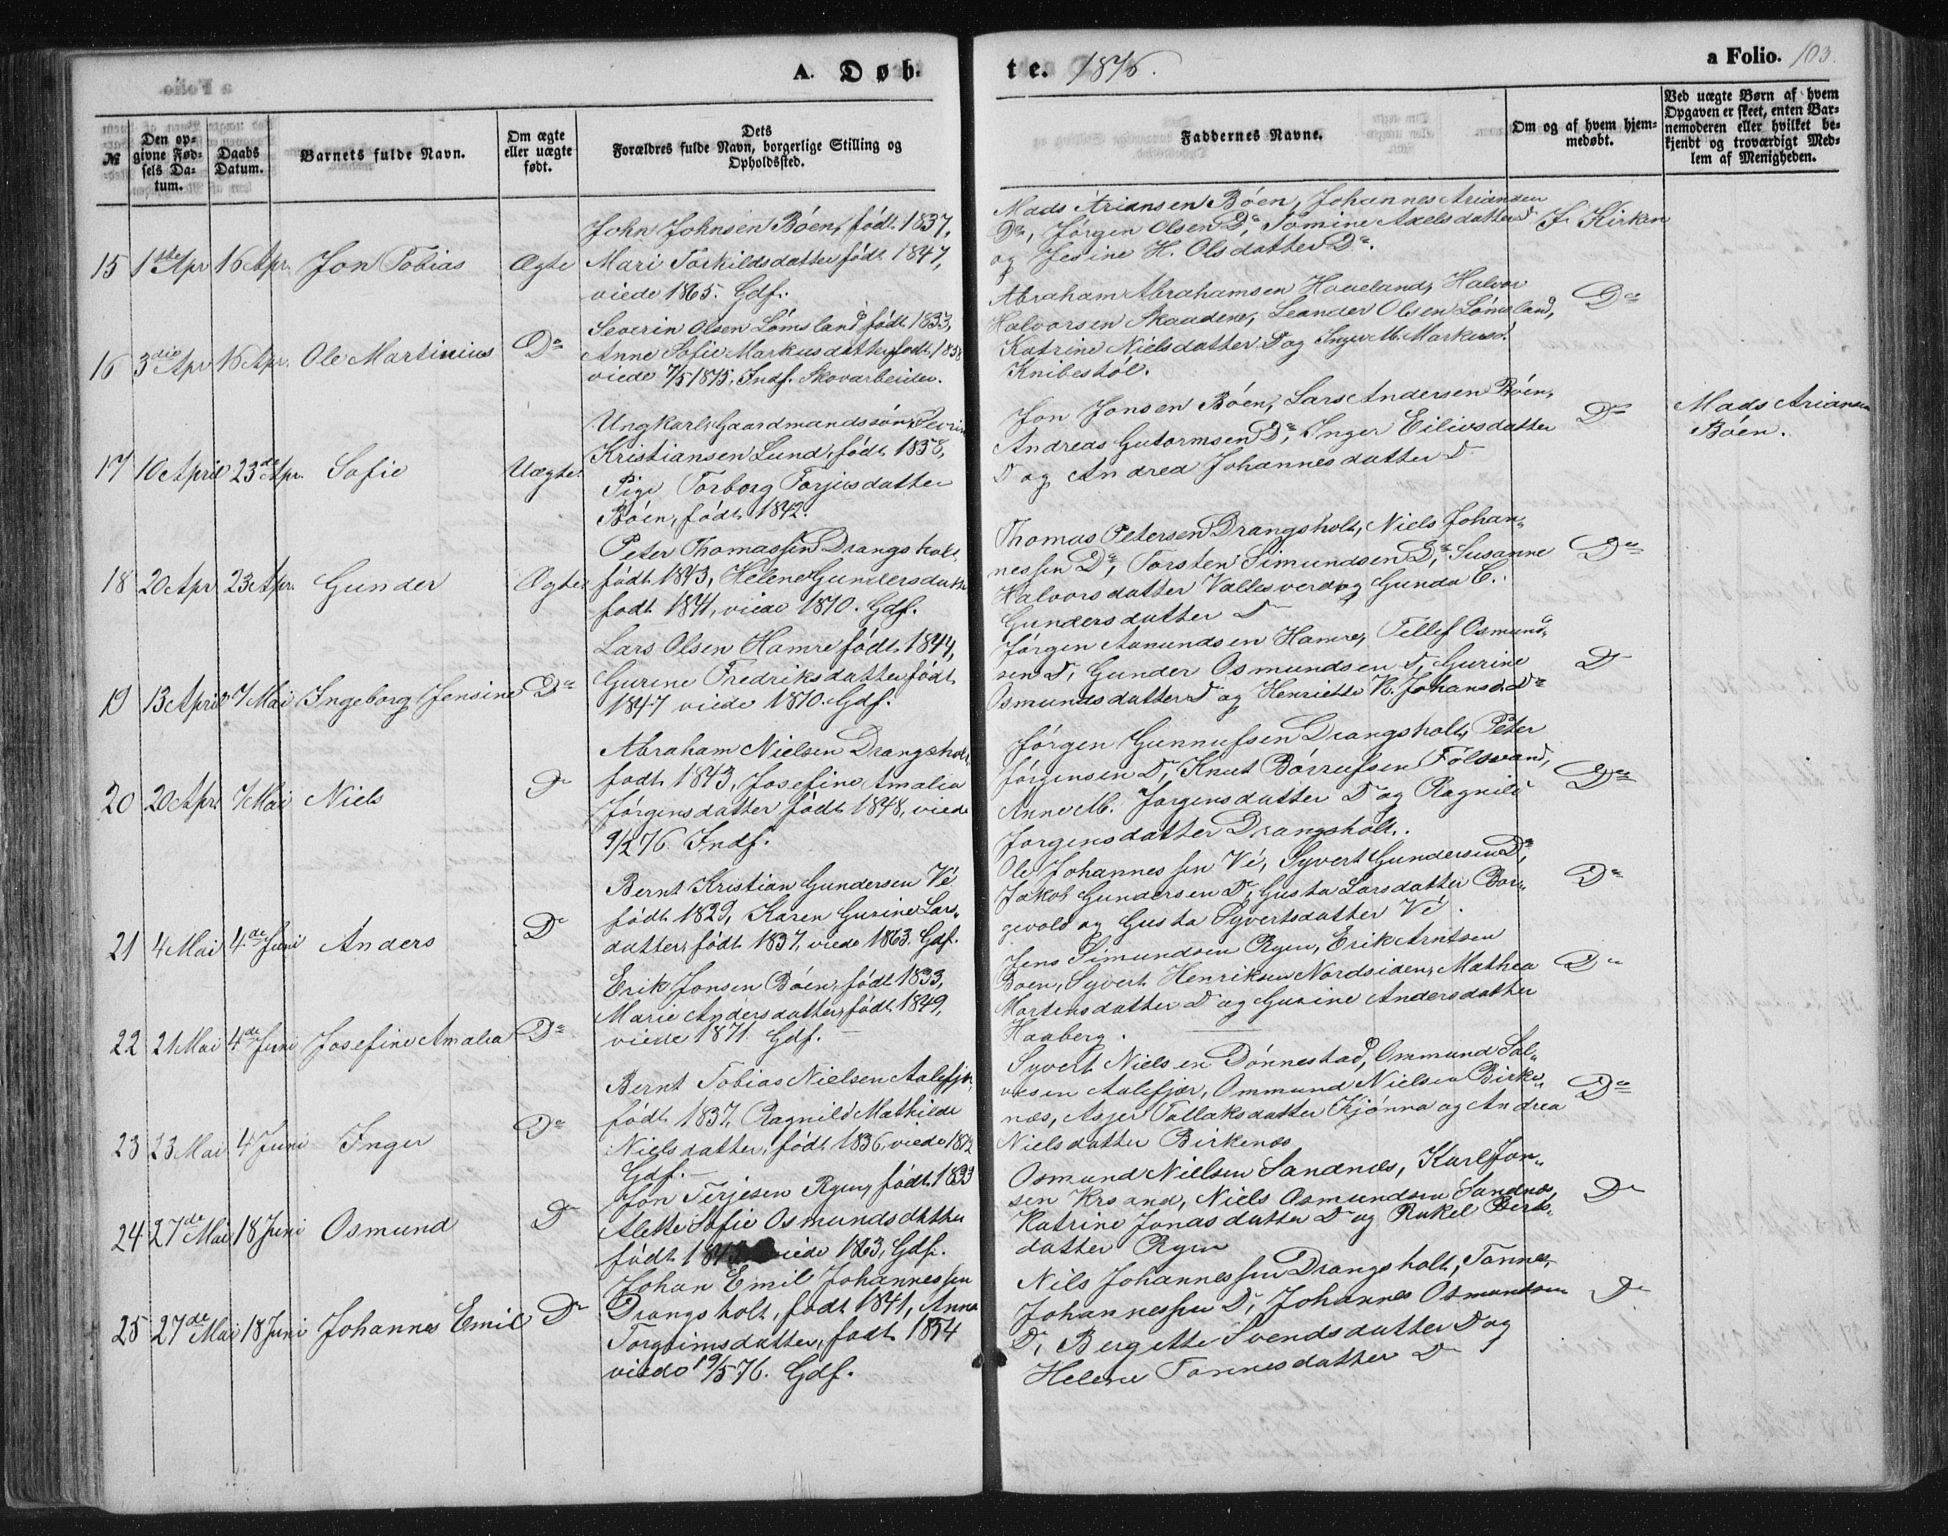 A. Døb-
te. 1876.
a Folio. 103.
№
Den op-
givne Fød-
sels Da-
tum.
Daabs
Datum.
Barnets fulde Navn.
Om ægte
eller uægte
født.
Dets
Forældres fulde Navn, borgerlige Stilling og
Opholdssted.
Faddernes Navne.
Om og af hvem hjem-
medøbt.
Ved uægte Børn af hvem
Opgaven er skeet, enten Bar-
nemoderen eller hvilket be-
kjendt og troværdigt Med-
lem af Menigheden.
15 1ste Apr 16 Apr. Jon Tobias Ægte
John Johnsen Böen, födt 1837,
Mari Torkildsdatter födt 1847,
viede 1865. Gdf.
Mads Ariansen Böen, Johannes Ariansen
Do, Jörgen Olsen Do, Tomine Axelsdatter D
og Jesine H. Olsdatter Do.
I Kirken
16 3die Apr 16 Apr. Ole Martinius Do
Severin Olsen Lömsland födt 1833,
Anne Sofie Markusdatter födt 1838
viede 7/5 1875, Indf. Skovarbeider.
Abraham Abrahamsen Haaeland, Halvor
Halvorsen Skaadene, Leander Olsen Lömsland,
Katrine Nielsdatter D og Inger M. Markusd.
Knibestöl.
Do
17 16 April 23de Apr. Sofie Uægte
Ungkarl, Gaardmandssön Sevrin
Kristiansen Lund, födt 1858,
Pige Torborg Torjusdatter
Böen, födt 1842.
Jon Jonsen Böen, Lars Andersen Böen,
Andreas Gutormsen Do, Inger Eilivsdatter
D og Andrea Johannesdatter D
Do
Mads Ariansen
Böen.
18 20 Apr 23 Apr. Gunder Ægte
Peter Thomassen Drangsholt
födt 1843, Helene Gundersdatter
födt 1841, viede 1870. Gdf.
Thomas Petersen Drangsholt, Niels Johan-
nessen Do, Torsten Simundsen Do, Susanne
Halvorsdatter Vallesverd og Gunda C.
Gundersdatter D
Do
19 13 April 7 Mai Ingeborg Jensine Do
Lars Olsen Hamre födt 1844,
Gurine Fredriksdatter födt
1847 viede 1870. Gdf.
Jörgen Aanundsen Hamre, Tellef Osmund-
sen D, Gunder Osmundsen D, Gurine
Osmundsdatter D og Henriette K. Johansd. Do
D
20 20 Apr 7 Mai Niels D
Abraham Nielsen Drangsholt
födt 1843, Josefine Amalia
Jörgensdatter födt 1848, viede
9/2 76. Indf.
Jörgen Gunnufsen Drangsholt, Peter
Jörgensen D, Knut Börrufsen Fölsvand,
Anne M. Jörgensdatter D og Ragnild
Jörgensdatter Drangsholt.
Do
21 4 Mai 4de Juni Anders D
Bernt Kristian Gundersen Vé
födt 1829, Karen Gurine Lars-
datter, födt 1837. viede 1863. Gdf.
Ole Johannessen Vé, Syvert Gundersen Do,
Jakob Gundersen D, Gusta Larsdatter Bor-
gevold og Gusta Syvertsdatter Vé.
Do
22 21 Mai 4de Juni Josefine Amalia Do
Erik Jonsen Böen, födt 1833,
Marie Andersdatter, födt 1849,
viede 1871. Gdf.
Jens Simundsen Ryen, Erik Arntsen
Boen, Syvert Henriksen Nordsiden, Mathea
Mortensdatter D og Gurine Andersdatter
Haaberg.
Do
23 23 Mai 4 Juni Inger Do
Bernt Tobias Nielsen Aalefjær,
födt 1837, Ragnild Mathilde
Nielsdatter, födt 1836, viede 1872
Gdf.
Syvert Nielsen Dönnestad, Ommund Sal-
vesen Aalefjær, Ommund Nielsen Birke-
næs, Asjer Tallaksdatter Kjönna og Andrea
Nielsdatter Birkenæs
Do
24 27de Mai 18 Juni Osmund D
Jon Terjesen Ryen, födt 1833
Alette Sofie Osmundsdatter
födt 184 viede 1863, Gdf.
Osmund Nielsen Sandnes, Karl Jon-
sen Krsand, Niels Osmundsen Sandnes,
Katrine Jonasdatter D og Rakel Berts-
datter Ryen
D
25 27de Mai 18 Juni Johannes Emil D
Johan Emil Johannessen
Drangsholt, födt 1841, Anna
Torgrimsdatter, födt 1854
viede 19/5 76. Gdf.
Nils Johannessen Drangsholt, Tønnes
Johannessen D, Johannes Osmundsen
D, Bergette Svendsdatter D og
Helene Tønnesdatter D
D